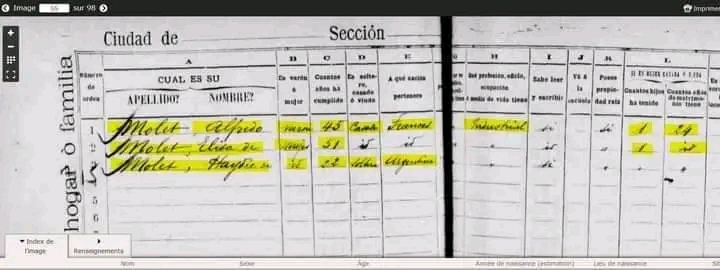 Image 55 sur 98 Imprimer
Ciudad de Sección
hogar ò familia
A B C D E H I J K L
Número de orden
CUAL ES SU
APELLIDO? NOMBRE?
Es varón ó mujer
Cuantos años há cumplido
Es soltero, casado ó viudo
A qué nación pertenece
Qué profesión, oficio, ocupación ó medio de vida tiene
Sabe leer y escribir
Vá á la escuela
Posee propiedad raíz
SI ES MUJER CASADA Ó VIUDA
Cuantos hijos ha tenido
Cuantos años de matrimonio tiene
1 Molet Alfredo varon 45 Casado Frances Industrial si si 1 29
2 Molet, Elisa de mujer 51 id id " " id " id 1 id
3 Molet, Haydee id 22 soltera Argentina " si " "
4
5
6
Index de l'image
Renseignements
Nom Sexe Âge Année de naissance (estimation) Lieu de naissance